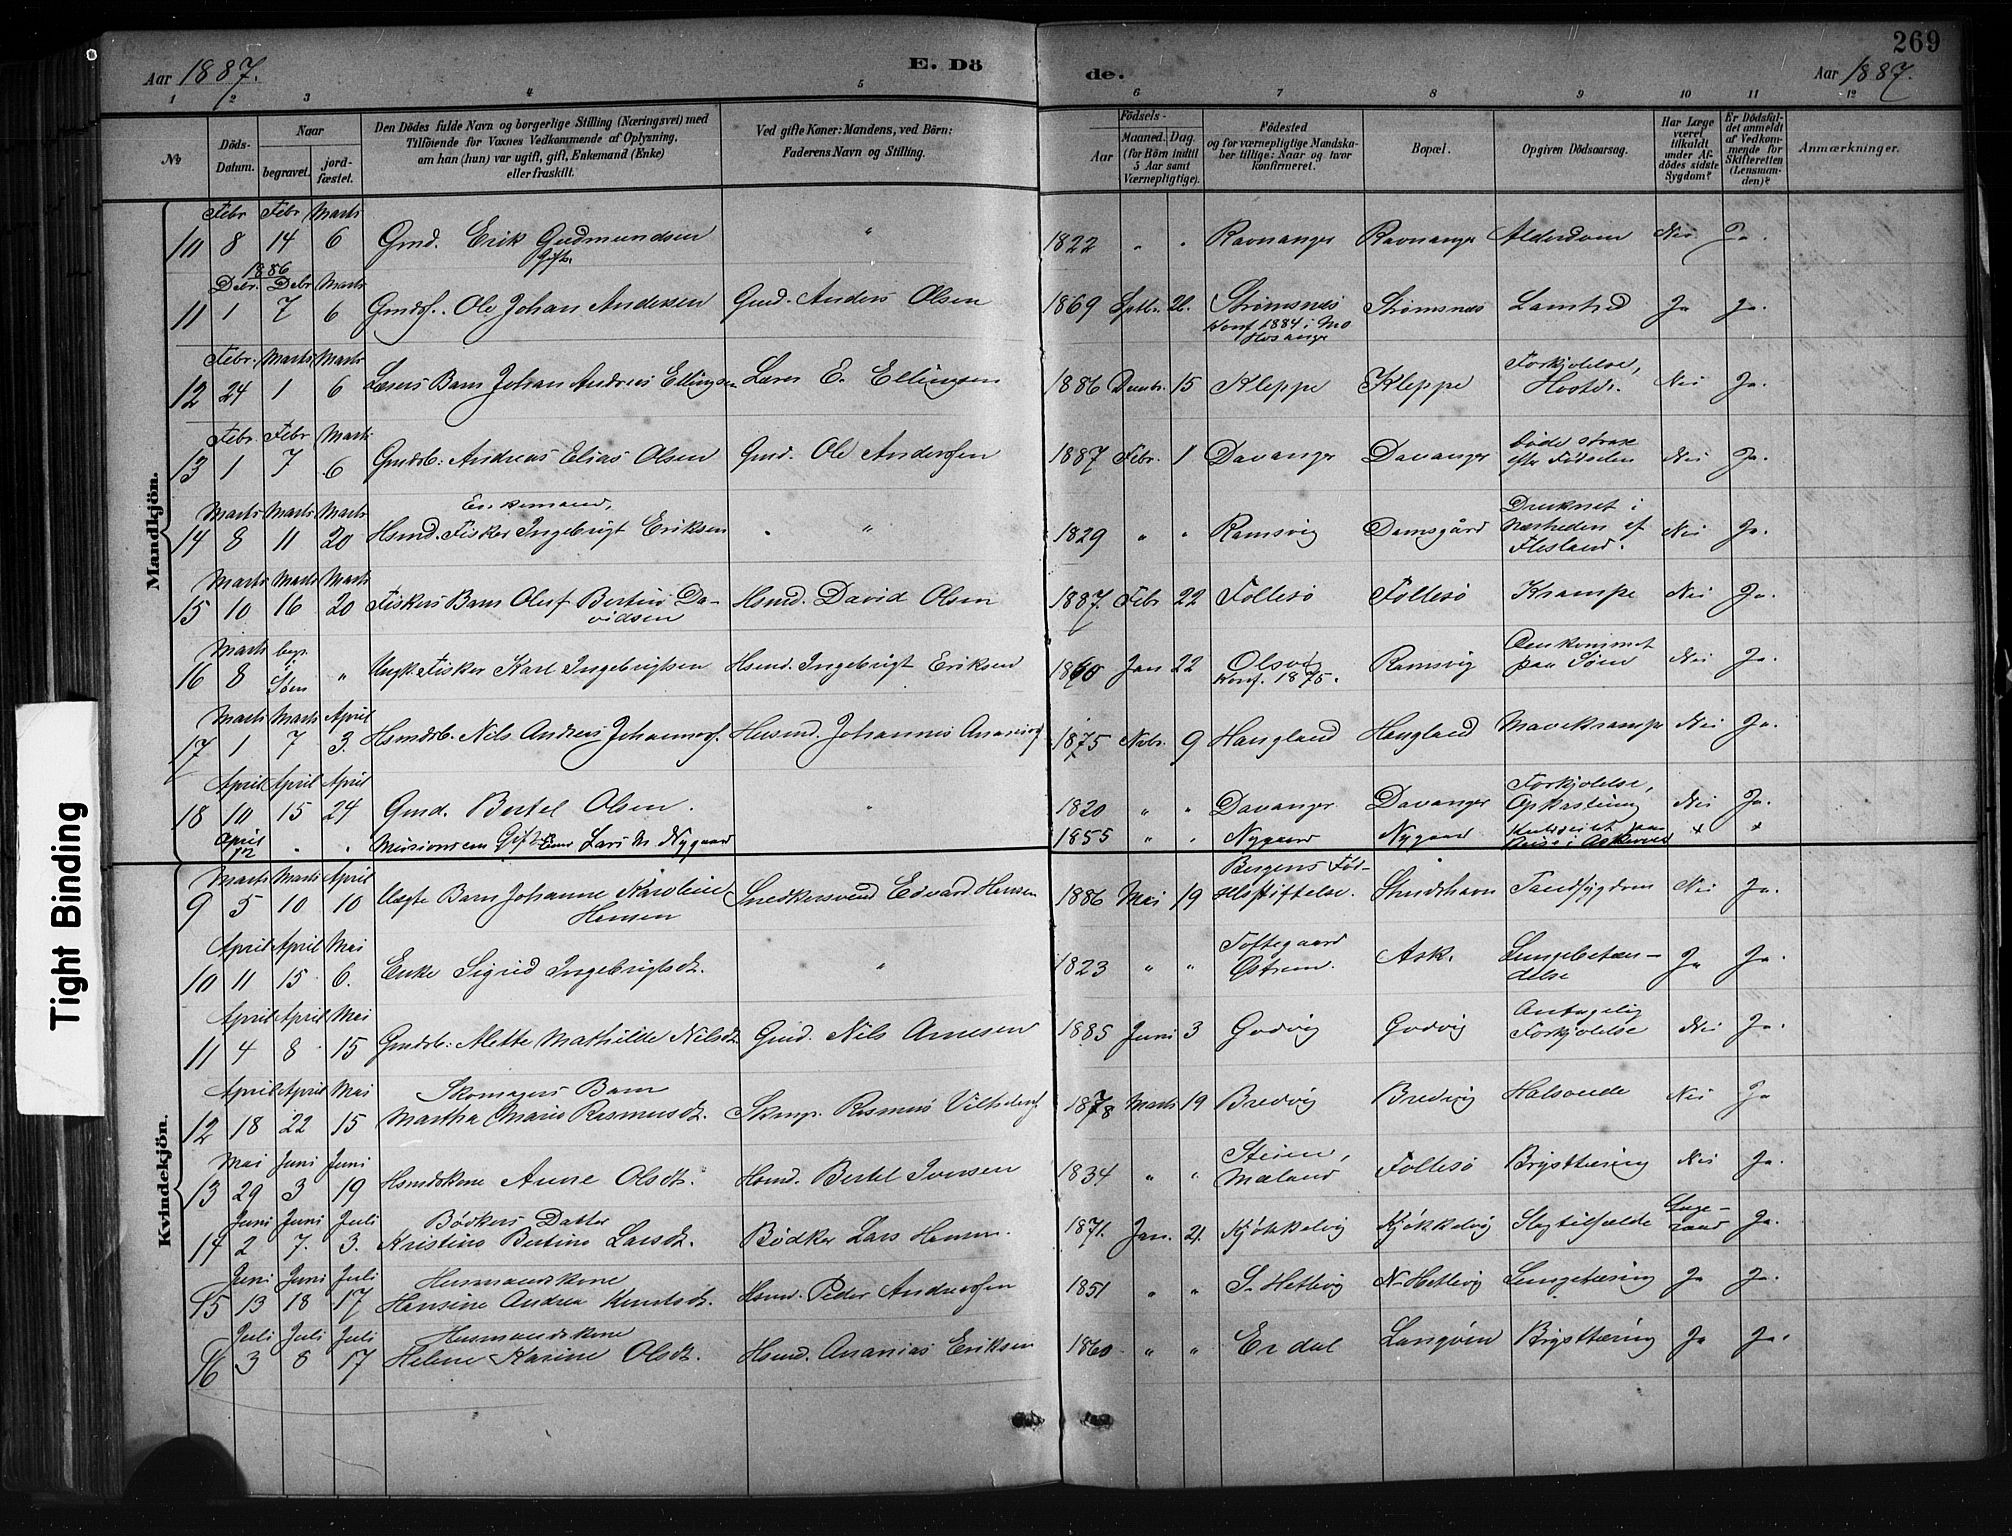 269
Aar 1887.
E. Dö
de.
Aar 1887.
1 2 3 4 5 6 7 8 9 10 11 12
№
Döds-Datum.
Naar
begravet.
jord-fæstet.
Den Dödes fulde Navn og borgerlige Stilling (Næringsvei) med
Tilföiende for Voxnes Vedkommende af Oplysning,
om han (hun) var ugift, gift, Enkemand (Enke)
eller fraskilt.
Ved gifte Koner: Mandens, ved Börn:
Faderens Navn og Stilling.
Födsels-
Aar
Maaned. Dag.
(for Börn indtil
5 Aar samt
Værnepligtige).
Födested
og for værnepligtige Mandska-
ber tillige: Naar og hvor
konfirmeret.
Bopæl.
Opgiven Dödsaarsag.
Har Læge
været
tilkaldt
under Af-
dödes sidste
Sygdom?
Er Dödsfal-
det anmeldt
af Vedkom-
mende for
Skifteretten
(Lensman-
den)?
Anmærkninger.
Mandkjön.
Febr Febr Marts
10 8 14 6 Gmd. Erik Gudmundsen " 1822 " " Ravnanger Ravnanger Alderdom Nei Ja
Gift.
1886
Debr. Debr Marts
11 1 7 6 Gmdsf. Ole Johan Andersen Gmd. Anders Olsen 1869 Sptbr. 26. Strømsnæs Strømsnæs Lamhed Ja Ja.
Konf. 1884 i Mo
Hosanger
Febr. Marts Marts
12 24 1 6 Læsers Barn Johan Andreas Ellingsen Læser E. Ellingsen 1886 Decmbr. 15 Kleppe Kleppe Forkjølelse, Hoste. Nei Ja.
Febr. Febr Marts
13 1 7 6 Gmdsb: Andreas Elias Olsen Gmd. Ole Anderssen 1887 Febr. 1 Davanger Davanger Døde strax efter Fødselen Nei Ja.
Marts Marts Marts Enkemand,
14 8 11 20 Hsmd. Fisker Ingebrigt Eriksen " 1829 " " Ramsvig Damsgård Druknet i Nærheden af Flesland. Nei Ja.
Marts Marts Marts
15 10 16 20 Fiskers Barn Oluf Bertins Da-
vidsen Hsmd. David Olsen 1887. Febr 22 Follesø Follesø Krampe Nei Ja.
Marts begr. i Søen
16 8 " Ungk. Fisker Karl Ingebrigtsen Hsmd. Ingebrigt Eriksen 1860 Jan 22 Olsvig Ramsvig Omkommet paa Søen Nei Ja.
Konf. 1875.
Marts Marts April
17 1 7 3. Hsmdsb. Nils Andreas Johannesf. Husmd. Johannes 1875 Nvbr. 9 Haugland Haugland Mavekrampe Nei Ja.
April April April
18 10 15 24 Gmd. Bertel Olsen. " 1820 " " Davanger Davanger Forkjølelse, Opkastning Nei Ja.
April
12 " " Missionær Gift Lars M. Nygaard 1855 " " Nygaard Nygaard
Kvindekjön.
Marts Marts April
9 5 10 10 Uægte Barn Johanne Karoline
Hansen Snedkersvend Edvard Hansen 1886 Mai 19 Bergens Fød-
selsstiftelse. Strudshavn Tandsygdom Nei Ja.
April April Mai
10 11 15 6. Enke Sigrid Ingebrigtsdt. " 1823 " " Toftegaard Østrem. Ask. Lungebetæn-
delse Ja Ja.
April April Mai
11 4 8 15 Gmdsb: Alette Mathilde Nilsdt. Gmd. Nils Arnesen 1885 Juni 3 Godvig Godvig Antagelig Forkjølelse Nei Ja.
April April Mai Skomagers Barn
12 18 22 15 Martha Marie Rasmusdt. Skmgr. Rasmus 1878 Marts 19 Bredvig Bredvig Halsonde Nei Ja
Mai Juni Juni
13 29 3 19 Hsmdskone Anne Olsdt. Hsmd. Bertel Iversen 1834 " " Steien, Mæland Follesø Brysttæring Nei Ja.
Juni Juni Juli Bødkers Datter
14 2 7. 3. Kristine Bertine Larsdt. Bødker Lars Hansen. 1871. Jan. 21. Kjøkkelvig Kjøkkelvig Slagtilfælde Læge-
raad Ja.
Juni Juni Juli Husmandskone
15 13 18 17 Hansine Andrea Knutsdt. Hsmd. Peder Andreassen 1851 " " S-Hetlevig N-Hetlevig Lungetæring Ja Ja.
Juli Juli Juli Husmandskone
16 3 8 17 Helene Karine Olsdt. Hsmd. Ananias Eriksen 1860 " " Erdal Langøen Brysttæring Ja Ja.
Tight Binding